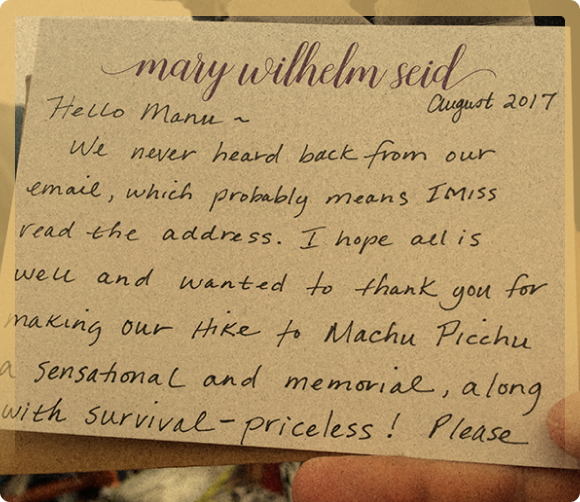 mary wilhelm seid
August 2017
Hello Manu ~
We never heard back from our
email, which probably means I Miss
read the address. I hope all is
well and wanted to thank you for
making our Hike to Machu Picchu
a sensational and memorial, along
with survival-priceless! Please